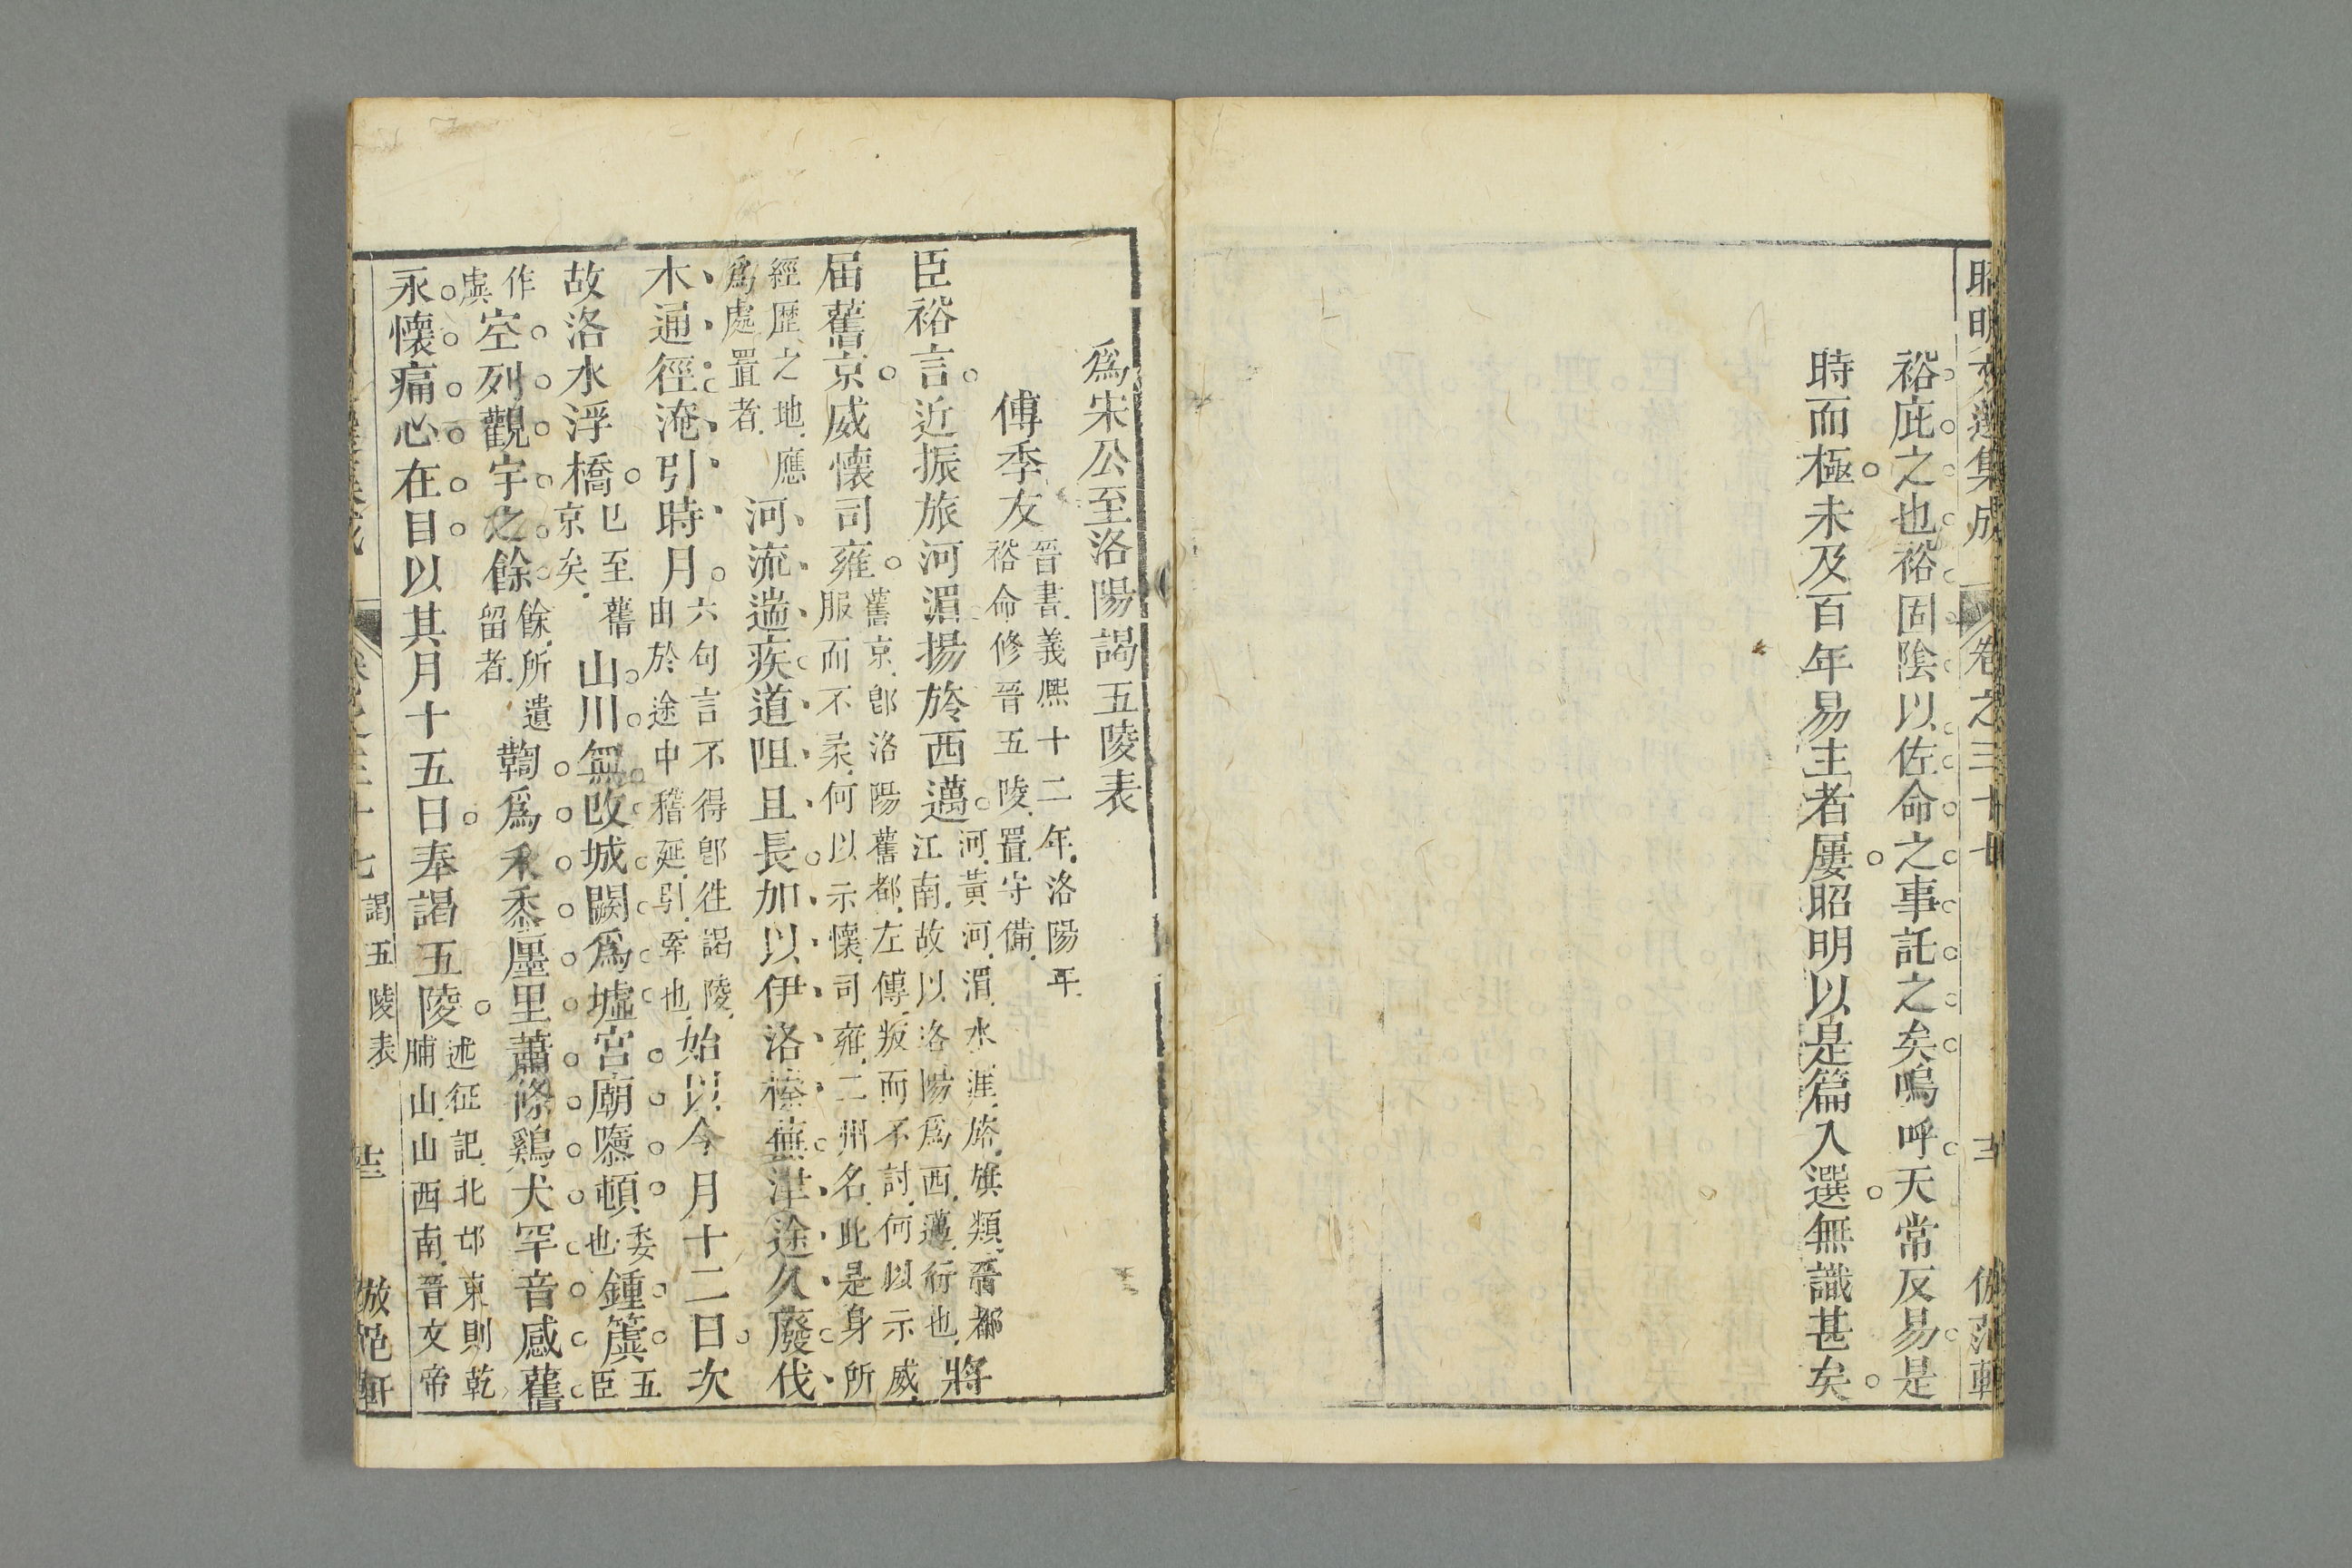 昭明文選集成 卷之三十七 十二 倣范軒
裕庇之也裕固陰以佐命之事託之矣嗚呼天常反易是
時而極未及百年易主者屢昭明以是篇入選無識甚矣
爲宋公至洛陽謁五陵表
傅季友 晉書義熙十二年洛陽平裕命修晉五陵置守備
臣裕言近振旅河湄揚旍西邁 河黃河湄水涯旍旗類晉都江南故以洛陽爲西邁行也 將
屆舊京威懷司雍 舊京卽洛陽舊都左傳叛而不討何以示威服而不柔何以示懷司雍二州名此是身所
經歷之地應爲處置者 河流遄疾道阻且長加以伊洛榛蕪津途久廢伐
木通徑淹引時月 六句言不得卽往謁陵由於途中稽延引牽也 始以今月十二日次
故洛水浮橋 已至舊京矣 山川無改城闕爲墟宮廟隳頓 委也 鍾簴 五臣
作虡 空列觀宇之餘 餘所遺留者 鞠爲禾黍廛里蕭條鷄犬罕音感舊
永懷痛心在目以其月十五日奉謁五陵 述征記北邙東則乾脯山山西南晉文帝
卷之三十七 謁五陵表 十三 倣范軒